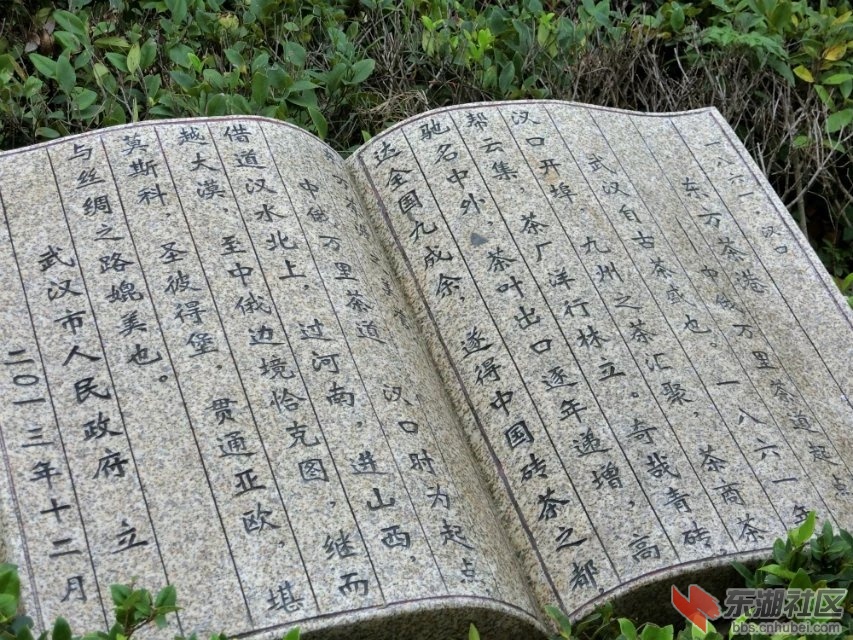 一八六一，汉口
东方茶港
中俄万里茶道起点
武汉自古茶盛也，一八六一年
汉口开埠，九州之茶汇聚，茶商茶
帮云集，茶厂洋行林立。奇哉青砖，
驰名中外，茶叶出口逐年递增，高
达全国九成余，遂得中国砖茶之都
中俄万里茶道，汉口时为起点
借道汉水北上，过河南，进山西，
越大漠，至中俄边境恰克图，继而
莫斯科，圣彼得堡，贯通亚欧，堪
与丝绸之路媲美也。
武汉市人民政府 立
二〇一三年十二月
东湖社区
bbs.cnhubei.com